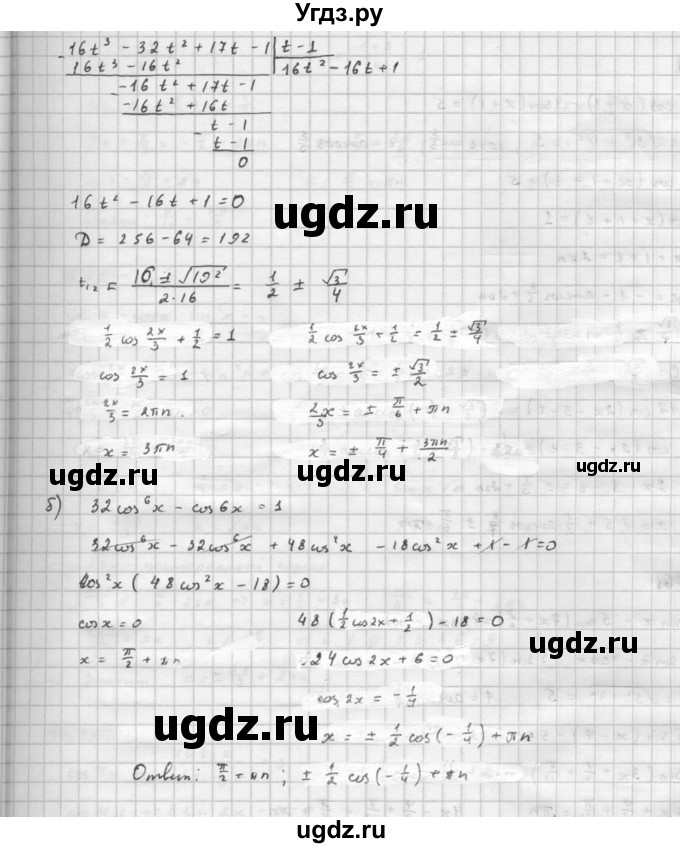 Угдз.ру
16t³ - 32t² + 17t - 1 | t - 1
16t³ - 16t² | 16t² - 16t + 1
-16t² + 17t - 1
-16t² + 16t
t - 1
t - 1
0
16t² - 16t + 1 = 0
ugdz.ru
D = 256 - 64 = 192
t₁,₂ = (16 ± √192)/(2·16) = 1/2 ± √3/4
1/2 cos 2x/3 + 1/2 = 1
1/2 cos 2x/3 + 1/2 = 1/2 ± √3/4
cos 2x/3 = 1
cos 2x/3 = ± √3/2
2x/3 = 2πn.
2/3 x = ± π/6 + πn
x = 3πn
x = ± π/4 + 3πn/2
ugdz.ru
ugdz.ru
б) 32cos⁶x - cos6x = 1
32cos⁶x - 32cos⁶x + 48cos⁴x - 18cos²x + 1 - 1 = 0
cos²x (48cos²x - 18) = 0
cosx = 0
48(1/2 cos2x + 1/2) - 18 = 0
ugdz.ru
x = π/2 + πn
24cos2x + 6 = 0
cos2x = -1/4
ugdz.ru
x = ± 1/2 cos(-1/4) + πn
Ответ: π/2 + πn; ± 1/2 cos(-1/4) + πn
ugdz.ru
ugdz.ru